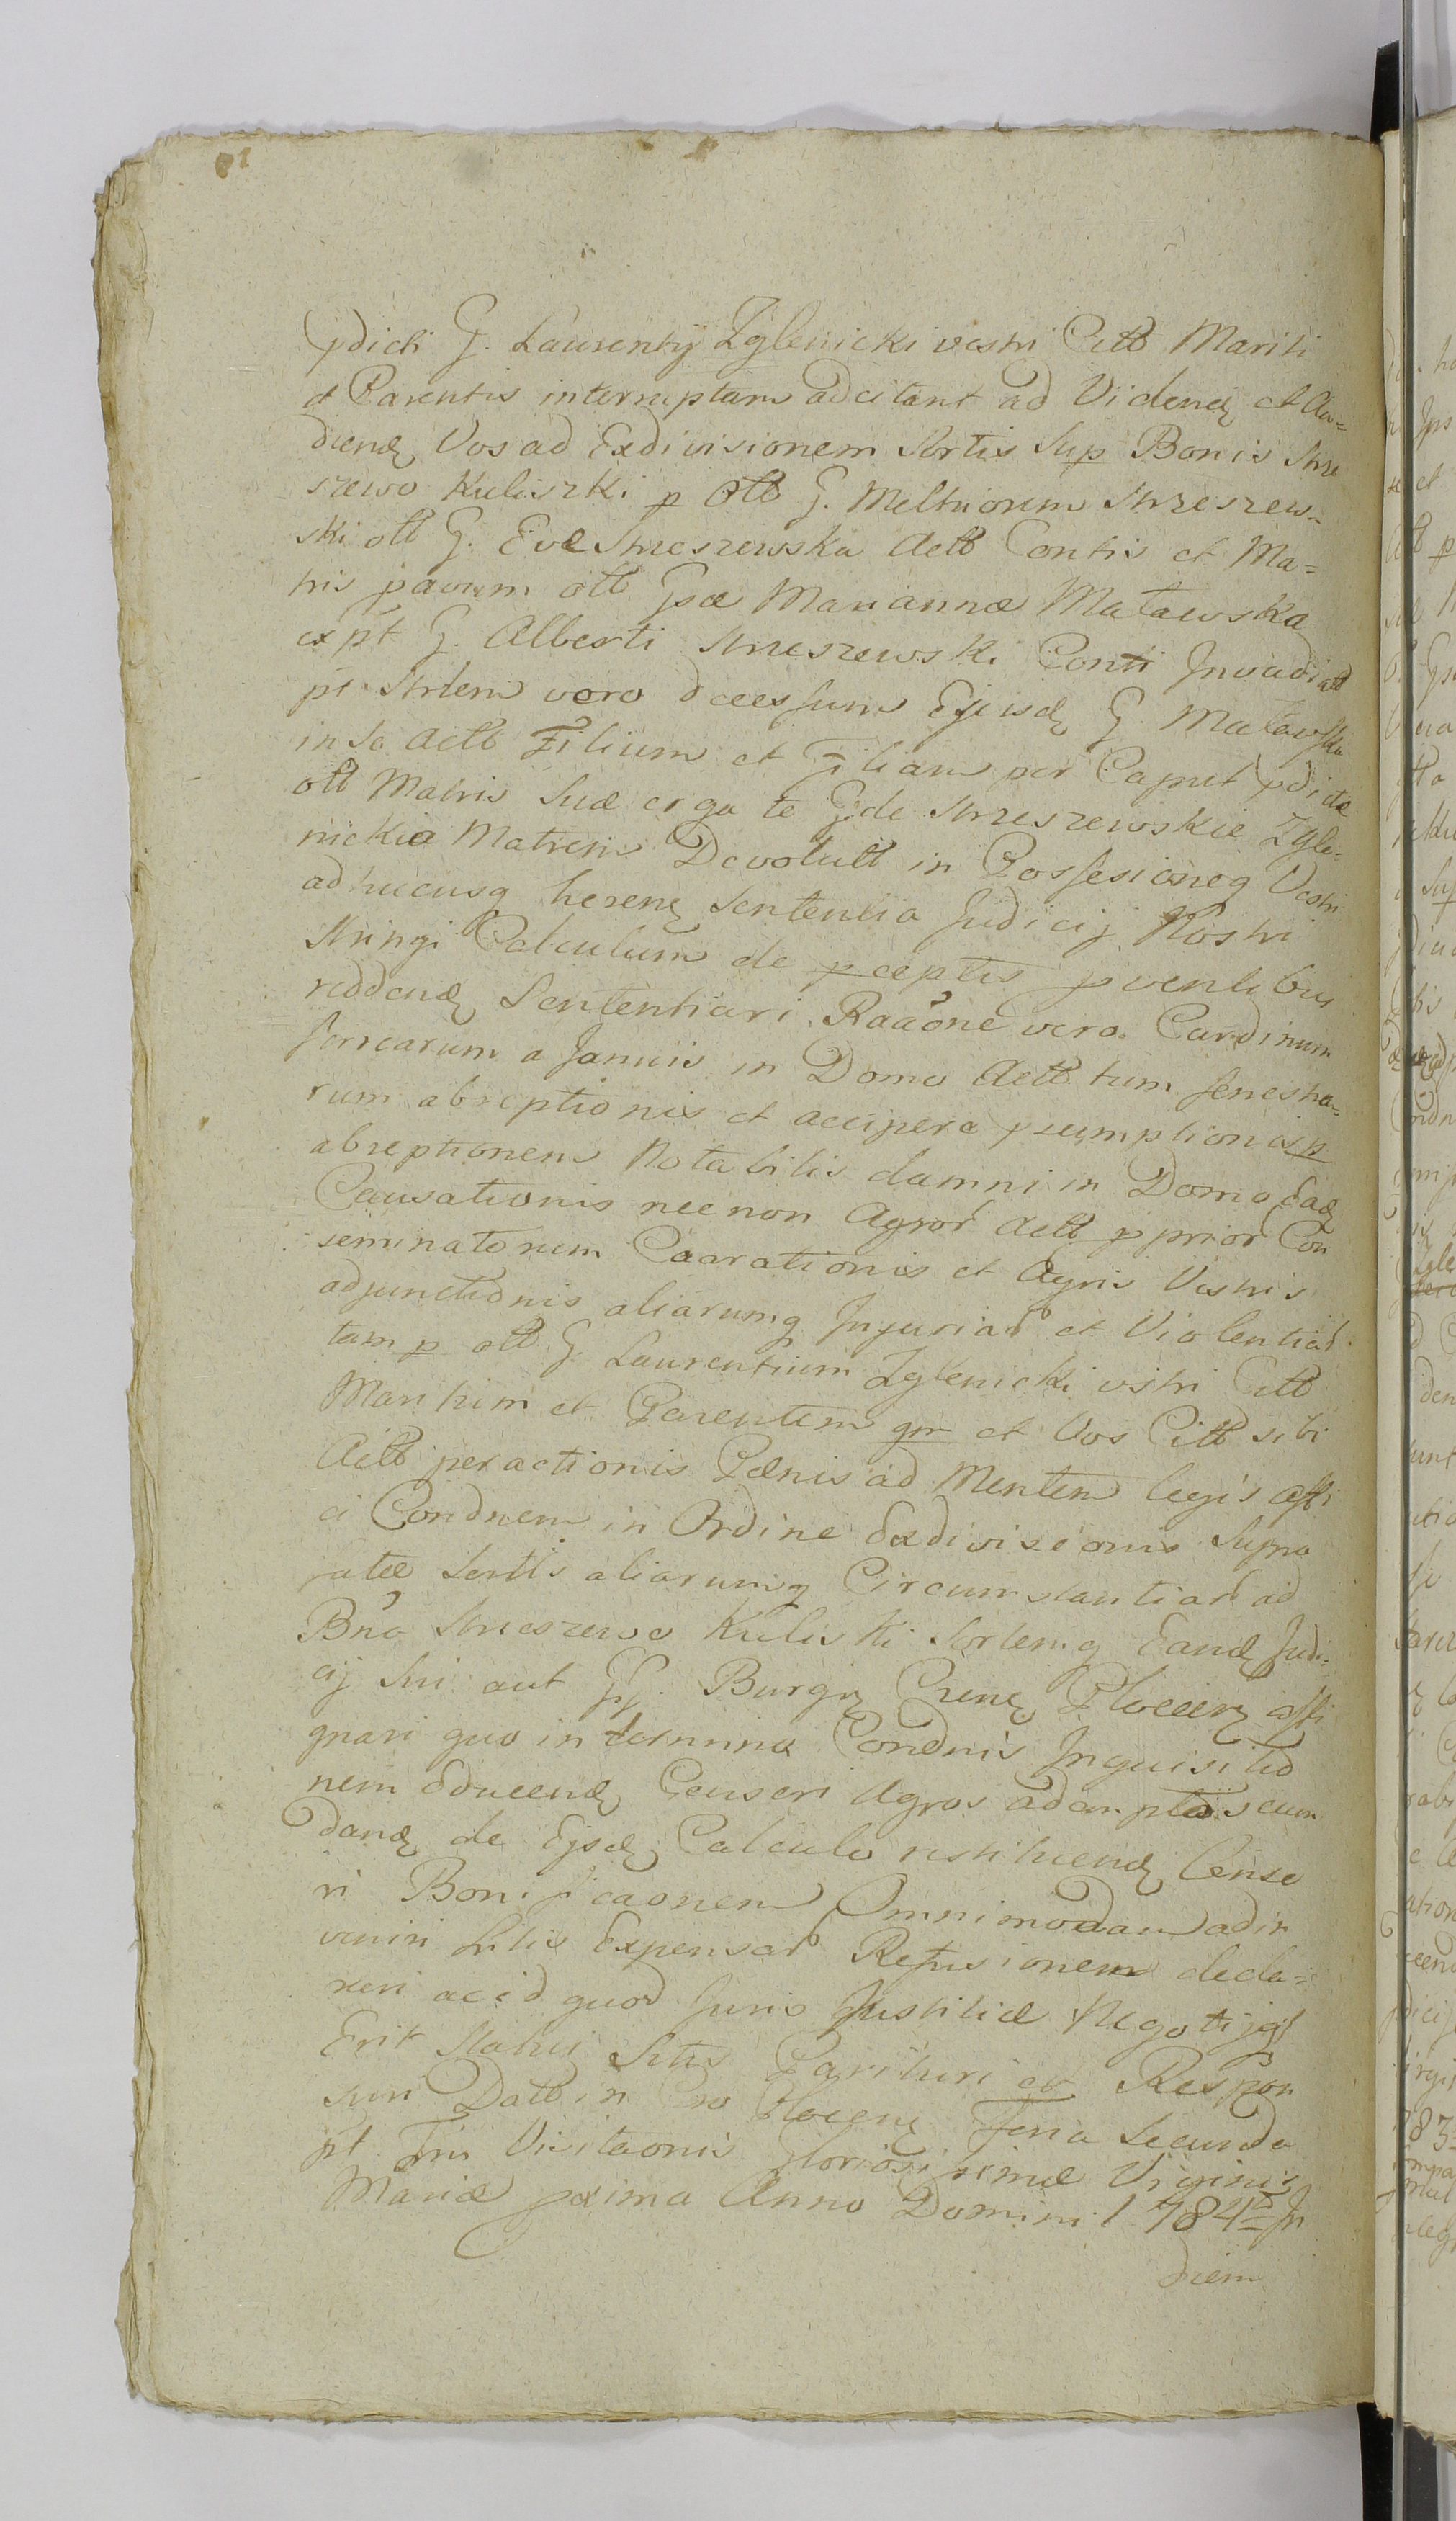 pdicti G. Laurentij Zglenicki vestri Citt Mariti
et Parentis interruptam adcitant ad Videnđ et Au=
dienđ Vos ad Exdivisionem Sortis Sup Bonis Strze
szewo Kuliszki p Ott G. Melhiorem Strzeszew=
ski ott G. Evæ Strzeszewska Actt Contis et Ma=
tris pavum ott Gsæ Mariannæ Matawska
ex pt G. Alberti Strzeszewski Conti Invadiatt
pt Mrtem vero deessum Ejusđ G. Matawska
in Se Actt Filium et Filiam per Caput pdictæ
ott Matris Suæ erga te Gde Strzeszewskie Zgle=
nickie Matrem Devolutt in Possesioneq Vestri
adhucusq herenŧ Sententia Judicij Nostri
Stringi Calculum de pceptis pventibus
reddenđ Sententiari Raaone vero Cardinum
ferrearum a Januis in Domo Actt tum fenestra=
rum abreptionis et accipere psumptionis p
abreptionem Notabilis damni in Domo Eađ
Causationis necnon Agror Actt p prior Con
seminatorum Coarationis et Agris Vestris
adjunctionis aliarumq Injuriar et Violentiar
tam p ott G. Laurentium Zglenicki vstri Citt
Maritum et Parentem qm et Vos Citt sibi
Actt peractionis Pænis ad Mentem legis affi
ci Condnem in Ordine Exdivisionis Supra
fatæ Sortis aliarumq Circumstantiar ad
Bna Strzeszewo Kulis ki Sortemq Eanđ Judi=
cij Sui aut GG. Burgŧ Crenŧ Plocenŧ assi
gnari quo in termino Condnis Inquisitio
nem Educenđ Censeri Agros ademptos cum
danđ de Ejsđ Calculo restituenđ Cense
ri Bonificaonem Omnimodam adin
veniri Litis Expensar Refusionem decla=
rari ac id quod Juris Justitiæ Negotijq
Erit Statui Sitis Parituri et Respon
suri Datt in Cro Plocenŧ Feria Secunda
pt Fm Visitaonis Gloriosissimæ Virginis
Mariæ pxima Anno Domini 1784to In
diem